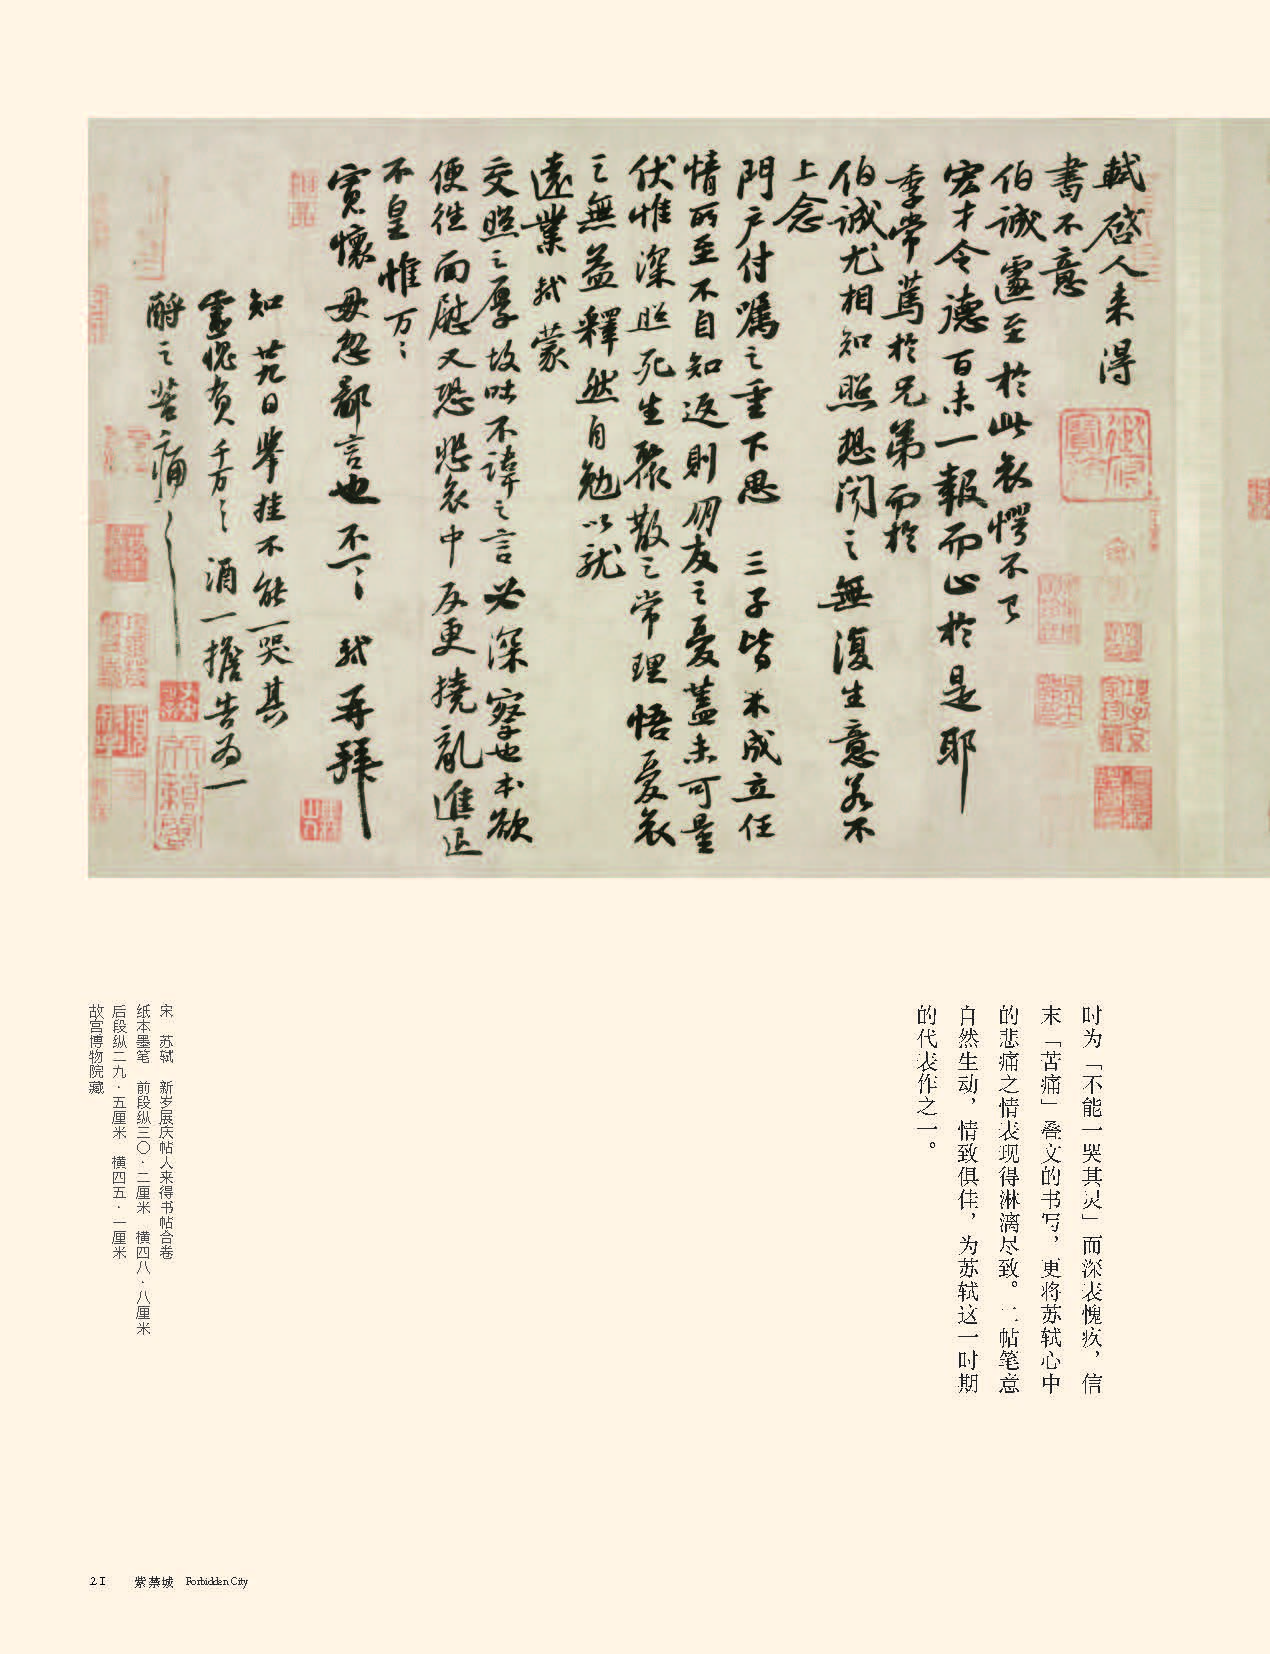 軾啓人来得
書不意
伯誠遽至於此哀愕不已
宏才令德百未一報而止於是耶
季常篤於兄弟而於
伯誠尤相知照想聞之無復生意若不
上念
門户付囑之重下思 三子皆未成立任
情所至不自知返則朋友之憂蓋未可量
伏惟深照死生聚散之常理悟憂哀
之無益釋然自勉以就
遠業軾蒙
交照之厚故吐不諱之言必深察也本欲
便往面慰又恐悲哀中反更撓亂進退
不皇惟万々
寛懷毋忽鄙言也不一々 軾再拜
知 廿九日舉挂不能一哭其
靈愧負千万々 酒一擔告为一
酹之苦痛
时为「不能一哭其灵」而深表愧疚，信
末「苦痛」叠文的书写，更将苏轼心中
的悲痛之情表现得淋漓尽致。二帖笔意
自然生动，情致俱佳，为苏轼这一时期
的代表作之一。
宋 苏轼 新岁展庆帖人来得书帖合卷
纸本墨笔 前段纵三〇·二厘米 横四八·八厘米
后段纵二九·五厘米 横四五·一厘米
故宫博物院藏
21 紫禁城 Forbidden City